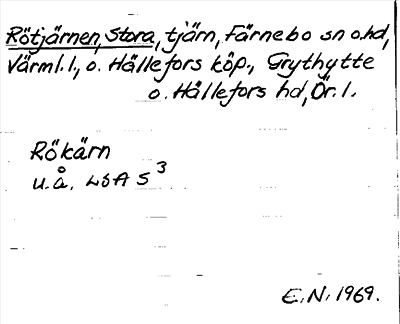 Rötjärnen, Stora, tjärn, Färnebo sn o.hd,
Värml.l., o. Hällefors köp., Grythytte
o. Hällefors hd, Ör.l.
Rökärn
u.å. LSA S³
E.N. 1969.